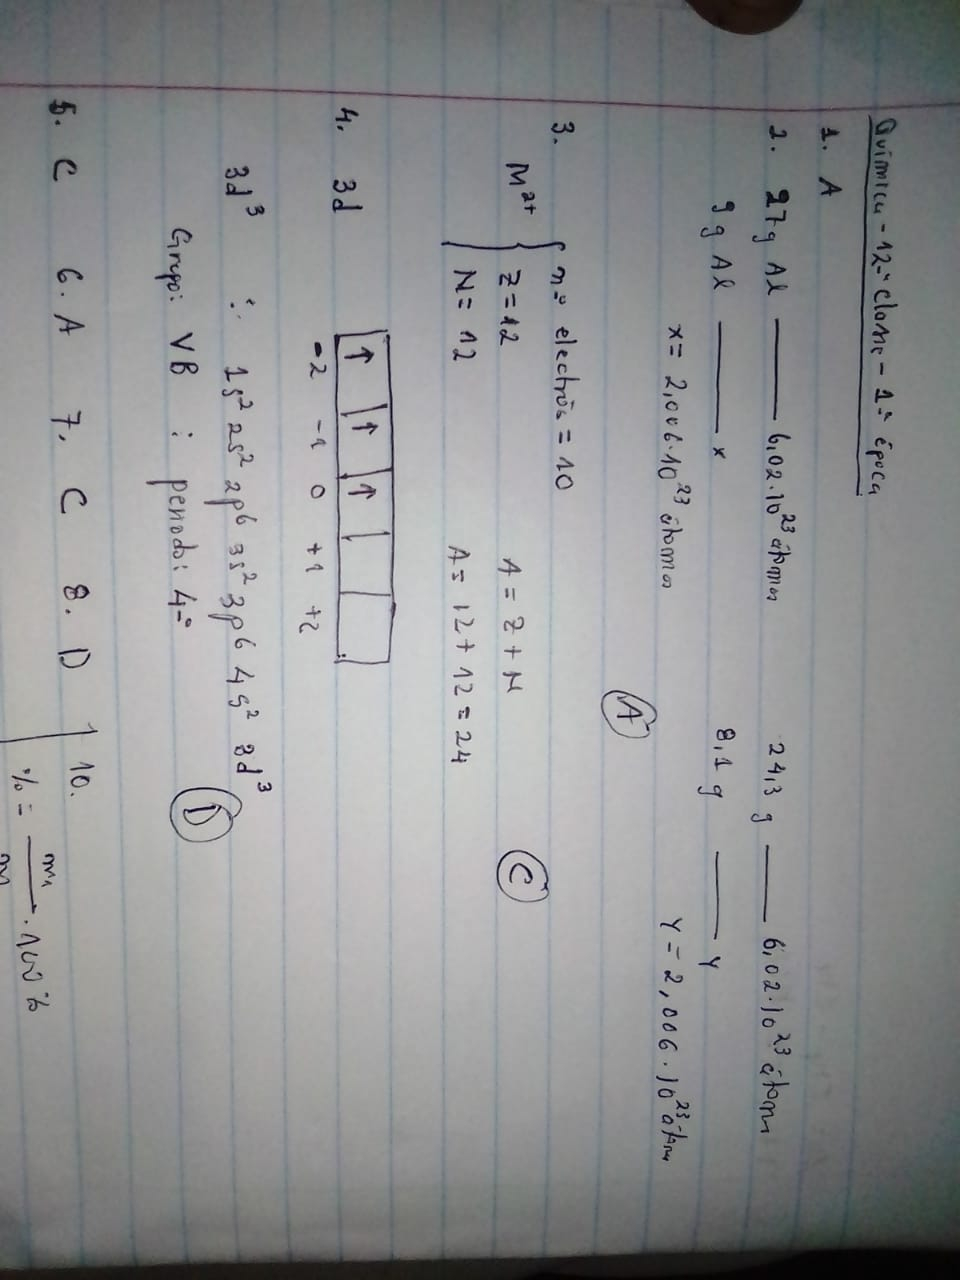 Química - 12ª classe - 1ª época
1. A
2. 27g Al —— 6,02.10²³ átomos 24,3 g —— 6,02.10²³ átomos
9 g Al —— x 8,1 g —— Y
x = 2,006.10²³ átomos Y = 2,006.10²³ átomos
A
3. nº electrões = 10
M²⁺ Z = 12 A = Z + N C
N = 12 A = 12 + 12 = 24
4. 3d ↑ ↑ ↑
-2 -1 0 +1 +2
3d³ ∴ 1s² 2s² 2p⁶ 3s² 3p⁶ 4s² 3d³
Grupo: VB ; período: 4º D
5. C 6. A 7. C 8. D 10.
% = m₁ / m .100%